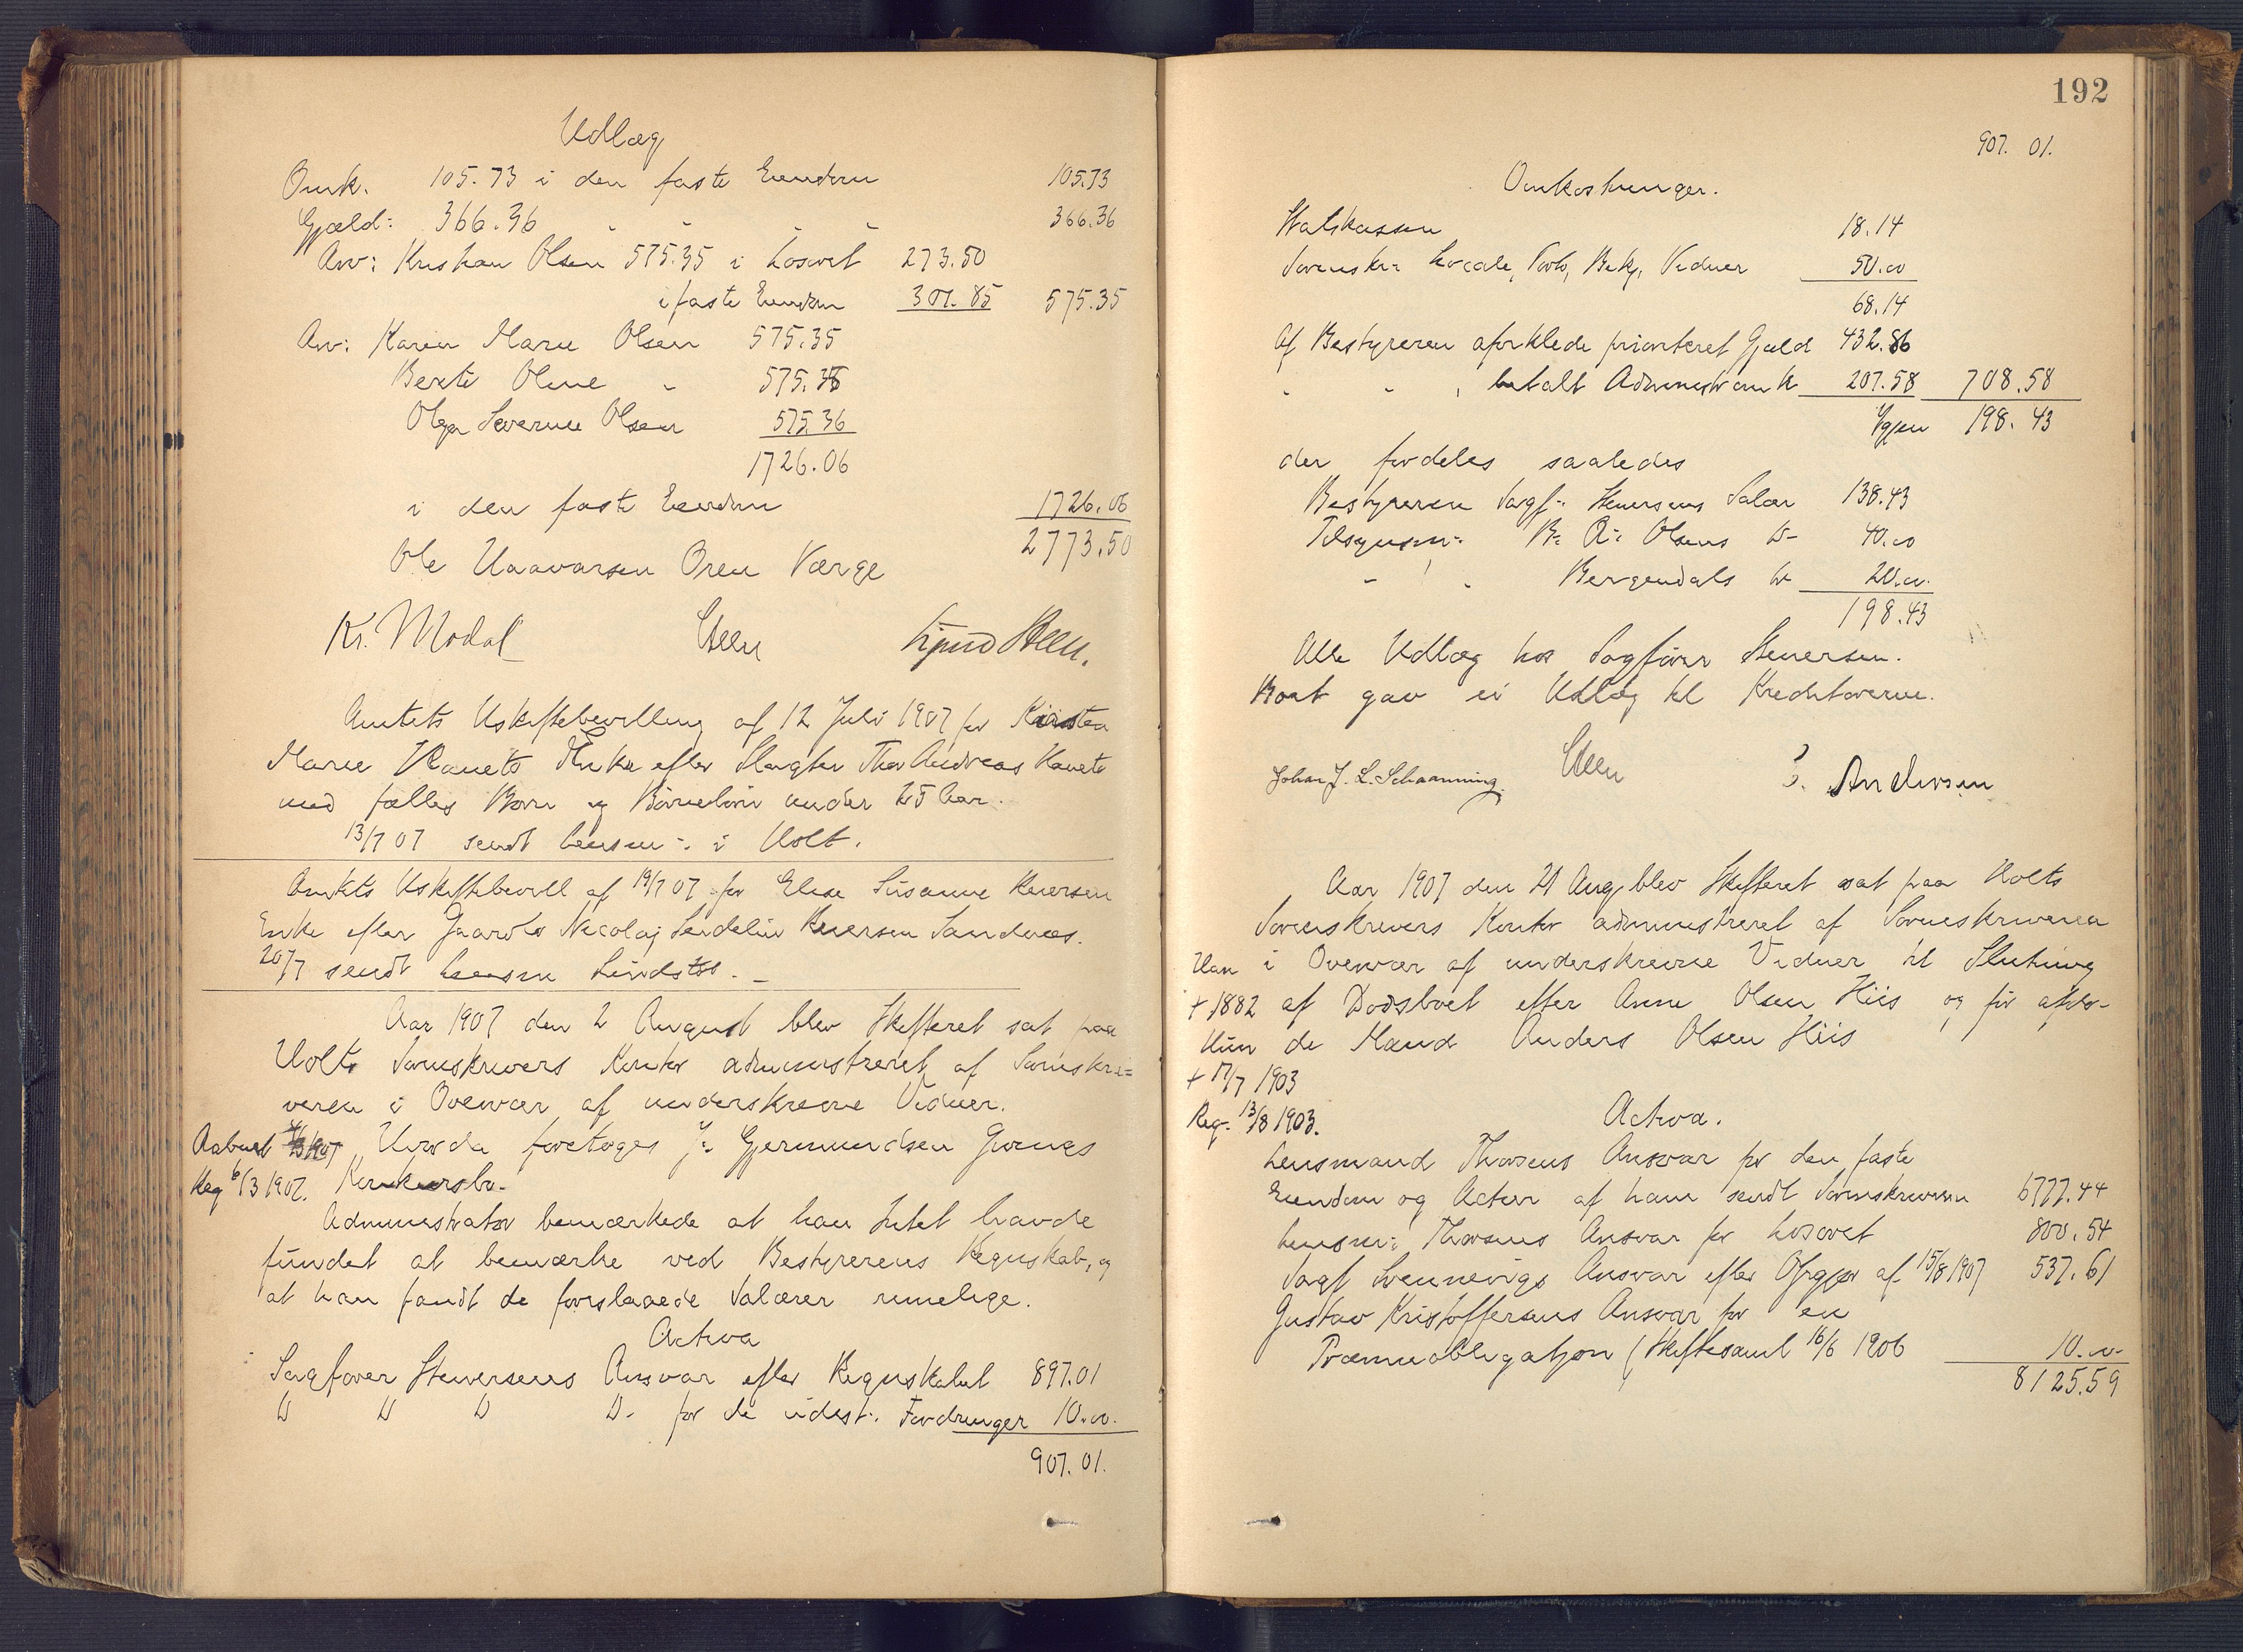 Udlæg
Omk. 105.73 i den faste Eiendom 105.73
Gjæld: 366.36 - - - - 366.36
Arv: Kristian Olsen 575.35 i Løsøret 273.50
i faste Eiendom 301.85 575.35
Arv: Karen Marie Olsen 575.35
Berte Oline - 575.35
Olga Severine Olsen 575.36
1726.06
i den faste Eiendom 1726.06
2773.50
Ole Haavorsen Oren Værge
Kr. Modal Steen
Amtets Uskiftebevilling af 12 Juli 1907 for Kirsten
Marie Hanets Enke efter Slagter Thor Andreas Hanets
med fælles Børn og Børnebørn under 25 Aar.
13/7 07 sendt Lensm: i Holt.
Amtets Uskiftebevill af 19/7 07 for Elise Susanne Iversen
Enke efter Gaardbr Nicolaj Sendelin Iversen Sandnæs.
20/7 sendt Lensm Lindstøl. -
Aar 1907 den 2 August blev Skifteret sat paa
Holts Sorenskrivers Kontor administreret af Sorenskri=
veren i Overvær af underskrevne Vidner.
Aabnet 1907 Hvorda foretoges J: Gjermundsen Gjernes
Reg 6/3 1907. Konkursbo.
Administrator bemærkede at han Intet havde
fundet at bemærke ved Bestyrerens Regnskab, og
at han fandt de foreslaaede Salærer rimelige.
Activa
Sagfører Stenersens Ansvar efter Regnskabet 897.01
D D D D- for de udest: Fordringer 10.00.
907.01.
192
907. 01.
Omkostninger.
Statskassen 18.14
Sorenskr: Locale, Prot, Bekj, Vidner 50.00
68.14
Af Bestyreren afviklede prioriteret Gjæld 432.86
- - , betalt Administr omk 207.58 708.58
Igjen 198.43
der fordeles saaledes
Bestyreren Sagf: Stenersens Salær 138.43
Tilsynsm: B: A: Olsens D- 40.00
- ' - Bergendals D 20.00.
198.43
Alle Udlæg hos Sagfører Stenersen.
Boet gav ei Udlæg til Kreditorerne.
Johan J. L. Schaanning. Steen Andersen
Aar 1907 den 21 Aug. blev Skifteret sat paa Holts
Sorenskrivers Kontor administreret af Sorenskriveren
Han i Overvær af underskrevne Vidner til Slutning
+ 1882 af Dødsboet efter Anne Olsen Hiis og før afdø-
Hun de Mand Anders Olsen Hiis
+ 17/7 1903
Reg. 13/8 1903.
Activa.
Lensmand Thorsens Ansvar for den faste
Eiendom og Actier af ham sendt Sorenskriveren 6777.44
Lensm: Thorsens Ansvar for Løsøret 800.54
Sagf Svennevigs Ansvar efter Opgjør af 15/8 1907 537.61
Gustav Kristoffersens Ansvar for en
Præmieobligation (Skiftesaml 16/6 1906 10.00
8125.59